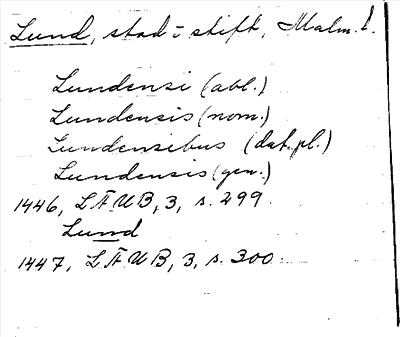 Lund, stad i stift, Malm. l.
Lundensi (abl.)
Lundensis (nom.)
Lundensibus (dat. pl.)
Lundensis (gen.)
1446, LÄUB, 3, s. 299.
Lund
1447, LÄUB, 3, s. 300.